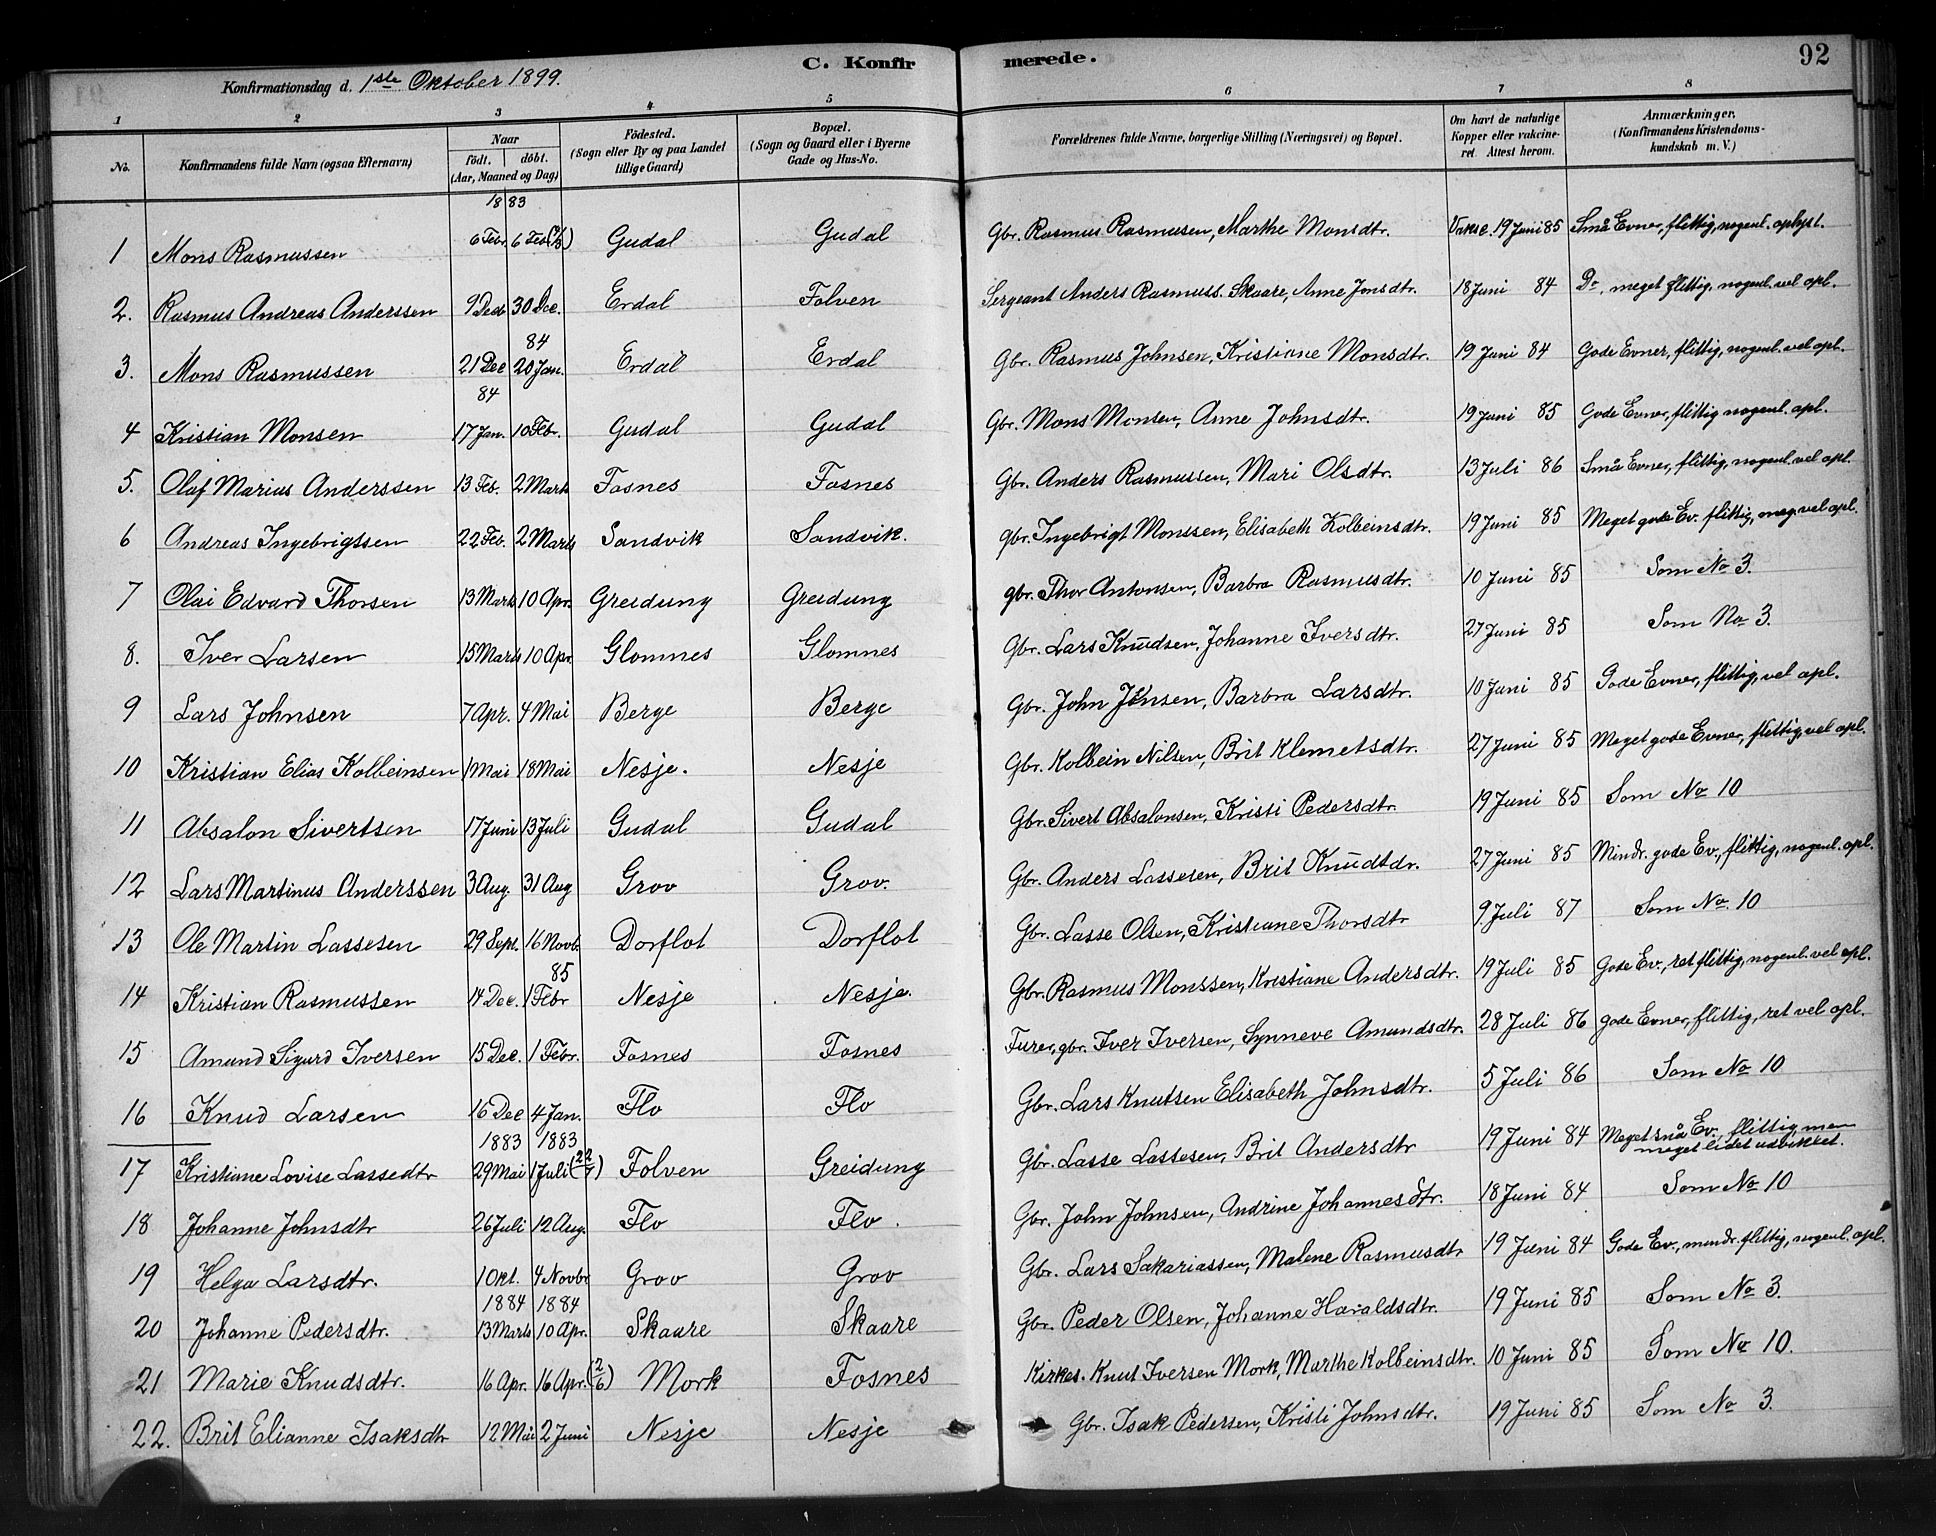 C. Konfirmerede. 92
Konfirmationsdag d. 1ste Oktober 1899.
1 2 3 4 5 6 7 8
No. Konfirmandens fulde Navn (ogsaa Efternavn) Naar födt. döbt. (Aar, Maaned og Dag) Födested. (Sogn eller By og paa Landet tillige Gaard) Bopæl. (Sogn og Gaard eller i Byerne Gade og Hus-No. Forældrenes fulde Navne, borgerlige Stilling (Næringsvei) og Bopæl. Om havt de naturlige Kopper eller vakcineret Attest herom. Anmærkninger. (Konfirmandens Kristendomskundskab m. V.)
1883
1 Mons Rasmussen 6 Febr. 6 Feb Gudal Gudal Gbr. Rasmus Rasmussen, Marthe Monsdtr. Vakse. 19 Juni 85 Små Evner, flittig, nogenl. oplyst.
2. Rasmus Andreas Anderssen 9 Decb 30 Dec. Erdal Folven Sergeant Anders Rasmuss. Skaare, Anne Jonsdtr. 18 Juni 84 Do, meget flittig, nogenl. vel opl.
84
3. Mons Rasmussen 21 Dec 20 Jan. Erdal Erdal Gbr. Rasmus Johnsen, Kristiane Monsdtr. 19 Juni 84 Gode Evner, flittig, nogenl. vel opl.
84
4 Kristian Monsen 17 Jan. 10 Febr. Gudal Gudal Gbr. Mons Monsen, Anne Johnsdtr. 19 Juni 85 Gode Evner, flittig nogenl. opl.
5. Olaf Marius Anderssen 13 Feb. 2 Marts Fosnes Fosnes Gbr. Anders Rasmussen, Mari Olsdtr. 13 Juli 86 Små Evner, flittig, nogenl. vel opl.
6 Andreas Ingebrigtsen 22 Feb. 2 Marts Sandvik Sandvik. gbr. Ingebrigt Monssen, Elisabeth Kolbeinsdtr. 19 Juni 85 Meget gode Ev. flittig, meg. vel opl.
7 Olai Edvard Thorsen 13 Marts 10 Apr. Greidung Greidung gbr. Thor Antonsen, Barbra Rasmusdtr. 10 Juni 85 Som No 3.
8. Iver Larsen 15 Marts 10 Apr. Glomnes Glomnes Gbr. Lars Knudsen, Johanne Iversdtr. 27 Juni 85 Som No 3.
9 Lars Johnsen 7 Apr. 4 Mai Berge Berge Gbr. John Jonsen, Barbra Larsdtr. 10 Juni 85 Gode Evner, flittig, vel opl.
10 Kristian Elias Kolbeinsen 1 Mai 18 Mai Nesje. Nesje Gbr. Kolbein Nilsen, Brit Klemetsdtr. 27 Juni 85 Meget gode Evner, flittig, vel opl.
11 Absalon Sivertsen 17 Juni 13 Juli Gudal Gudal Gbr. Sivert Absalonsen, Kristi Pedersdtr. 19 Juni 85 Som No 10
12 Lars Martinus Anderssen 3 Aug. 31 Aug Grov Grov. Gbr. Anders Lassesen, Brit Knudtdr. 27 Juni 85 Mindr. gode Ev., flittig, nogenl. opl.
13 Ole Martin Lassesen 29 Sept. 16 Novb. Dorflot Dorflot Gbr. Lasse Olsen, Kristiane Thorsdtr 9 Juli 87 Som No. 10
85
14 Kristian Rasmussen 14 Dec. 1 Febr Nesje Nesje. Gbr. Rasmus Monssen, Kristiane Andersdtr. 19 Juli 85 Gode Ev., ret flittig, nogenl. vel opl.
15 Amund Sigurd Iversen 15 Dec. 1 Febr. Fosnes Fosnes Furer, gbr. Iver Iversen, Synneve Amundsdtr. 28 Juli 86 Gode Evner, flittig, ret vel opl.
16 Knud Larsen 16 Dec 4 Jan. Flo Flo Gbr. Lars Knutsen Elisabeth Johnsdtr. 5 Juli 86 Som No 10
1883 1883
17 Kristiane Lovise Lassedtr 29 Mai 1 Juli (22/7) Folven Greidung Gbr. Lasse Lassesen, Brit Andersdtr 19 Juni 84 Meget små Ev., flittig, men meget lidet udviklet.
18 Johanne Johnsdtr 26 Juli 12 Aug. Flo Flo. Gbr. John Johnsen, Andrine Johannesdtr. 18 Juni 84 Som No 10
19 Helga Larsdtr. 1 Okt. 4 Novbr Grov Grov Gbr. Lars Sakariassen, Malene Rasmusdtr 19 Juni 84 Gode Ev., mindr. flittig, nogenl. opl.
1884 1884
20 Johanne Pedersdtr. 13 Marts 10 Apr. Skaare Skaare Gbr. Peder Olsen, Johanne Haraldsdtr. 19 Juni 85 Som No 3.
21 Marie Knudsdtr. 16 Apr. 16 Apr. (2/6) Mork Fosnes Kirkes. Knut Iversen Mork, Marthe Kolbeinsdtr. 10 Juni 85 Som No 10.
22. Brit Elianne Isaksdtr 12 Mai 2 Juni Nesje Nesje Gbr. Isak Pedersen, Kristi Johnsdtr. 19 Juni 85 Som No 3.